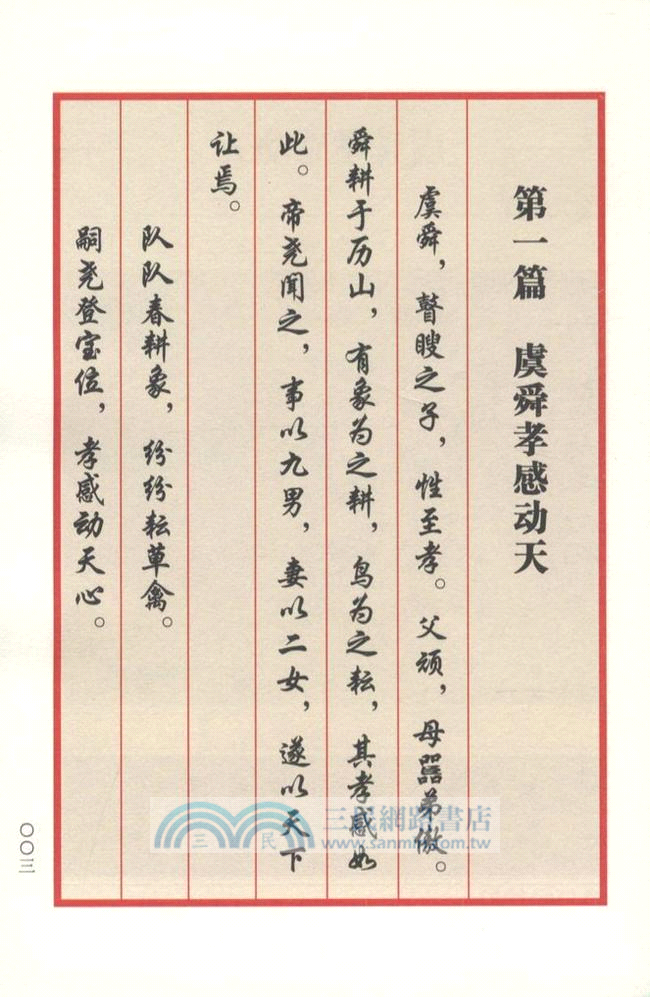 第一篇　虞舜孝感动天
虞舜，瞽瞍之子，性至孝。父顽，母嚚弟傲。
舜耕于历山，有象为之耕，鸟为之耘，其孝感如
此。帝尧闻之，事以九男，妻以二女，遂以天下
让焉。
队队春耕象，纷纷耘草禽。
嗣尧登宝位，孝感动天心。
〇〇三
三民網路書店
www.sanmin.com.tw
三民